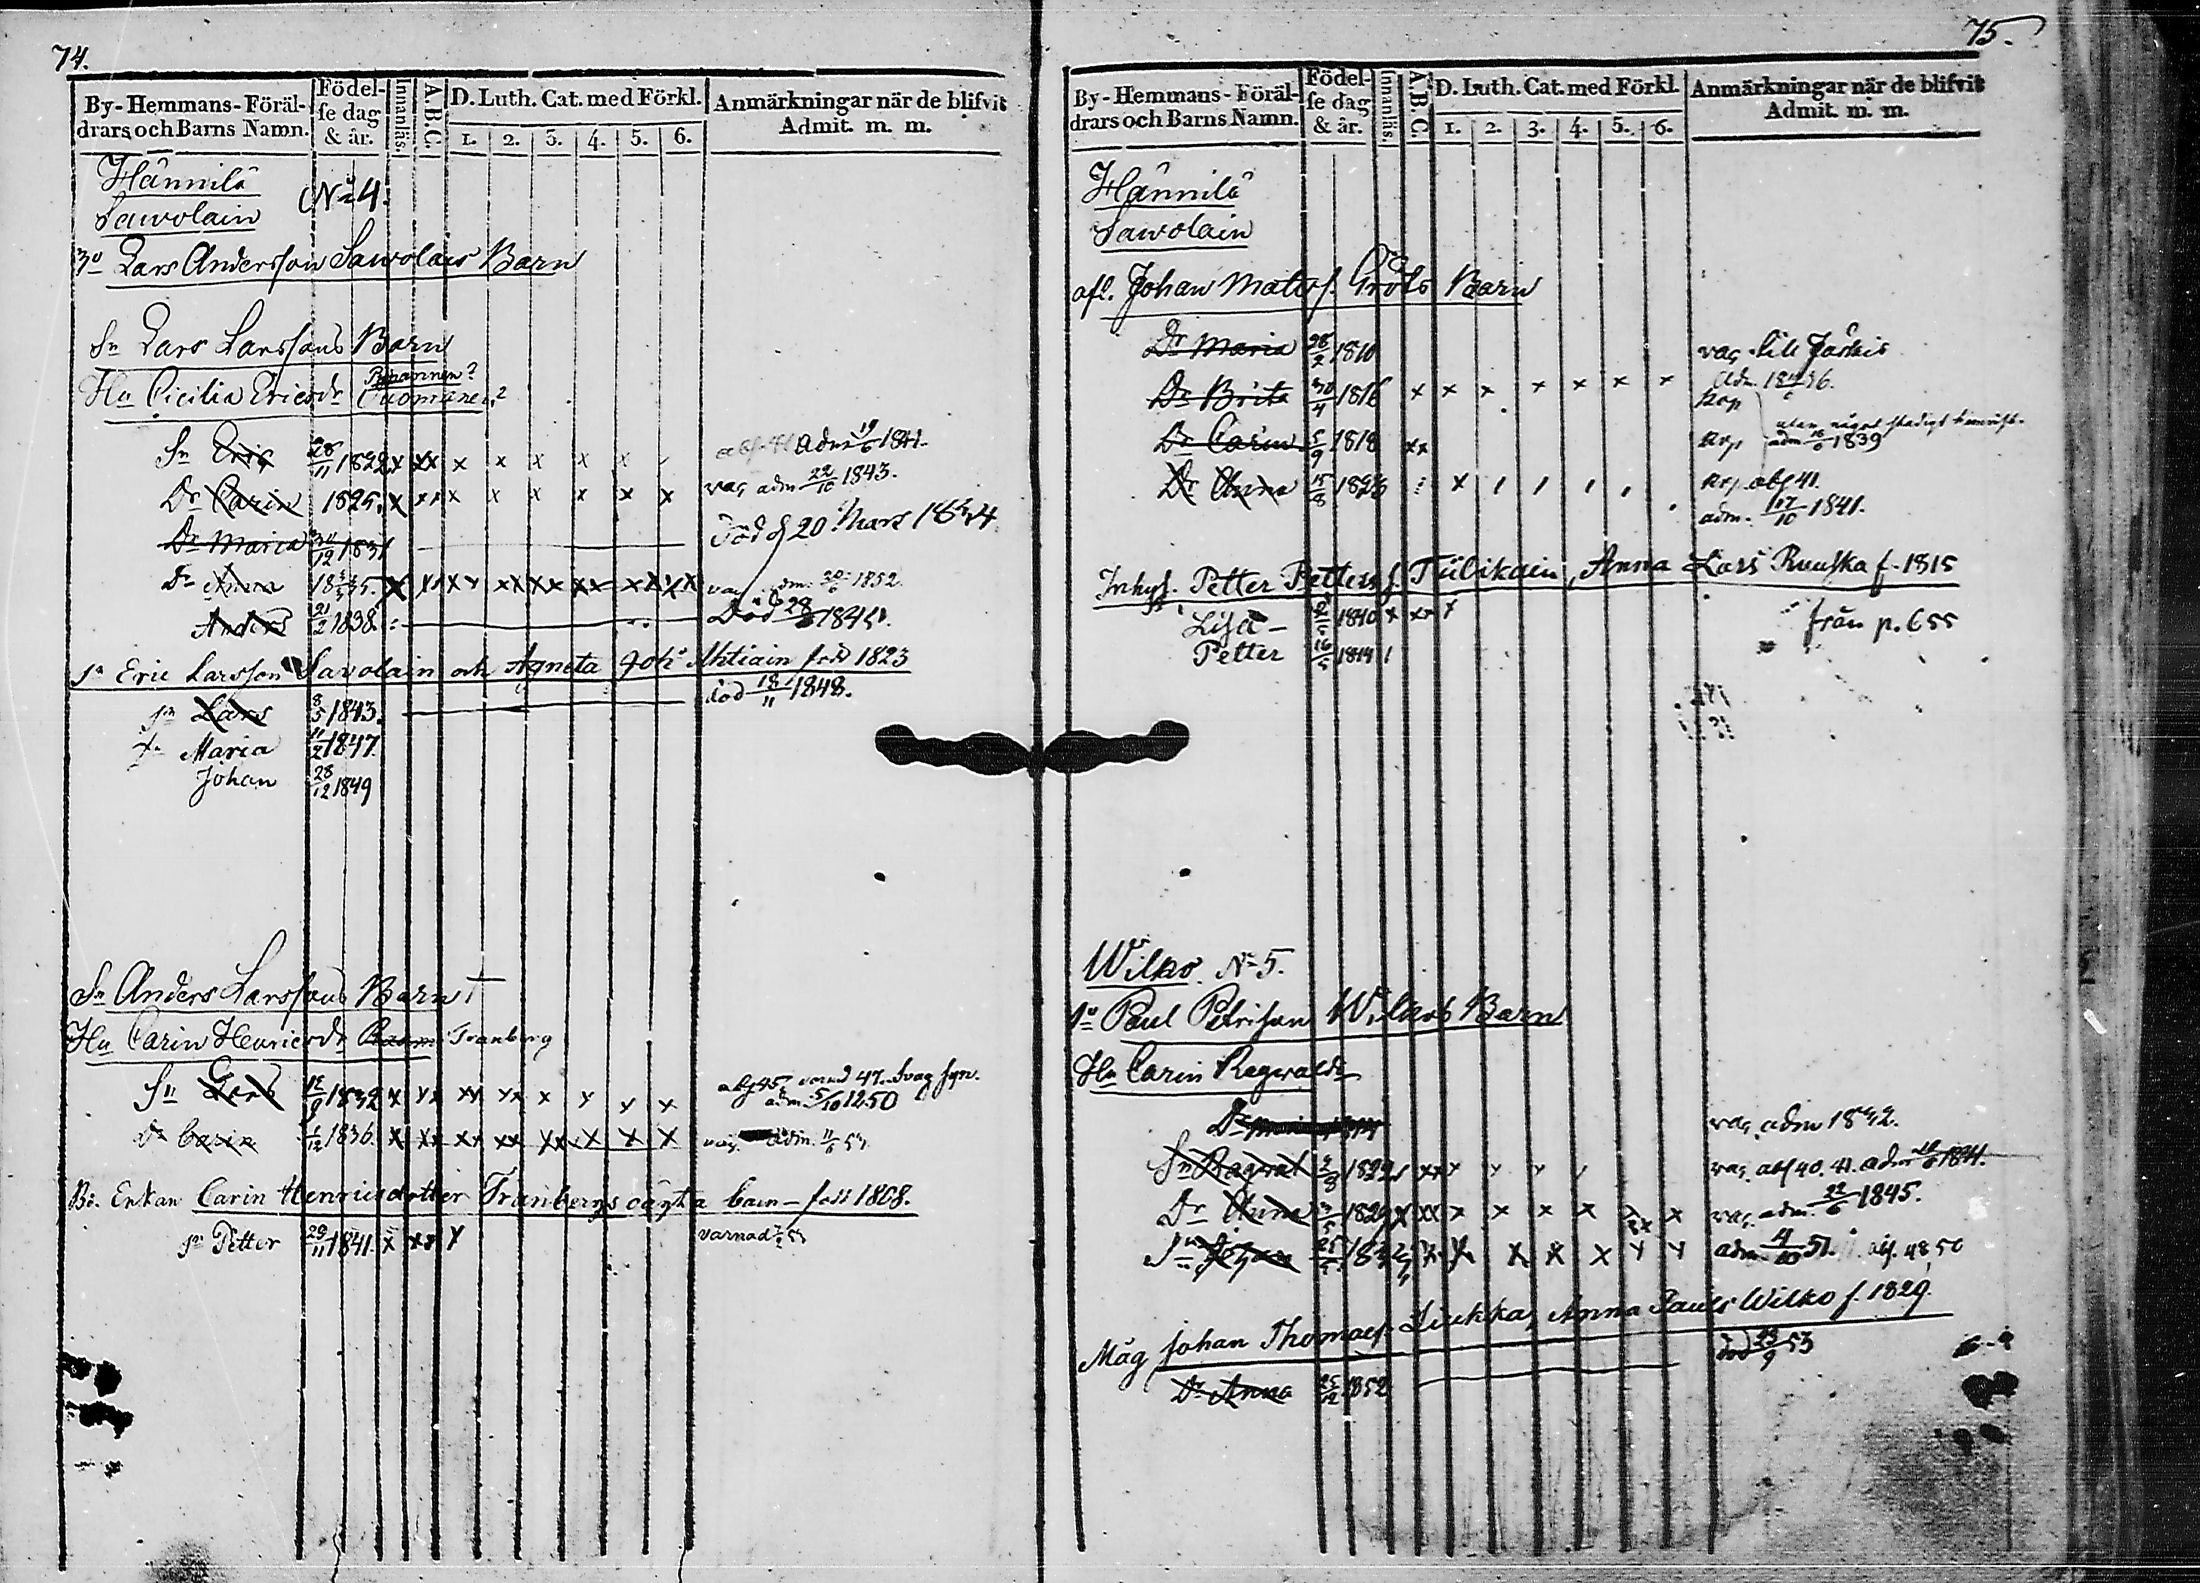 74.
By-Hemmans-Föräl-
drars och Barns Namn.
Födel-
se dag
& år.
Innanläs.
A.B.C.
D. Luth. Cat. med Förkl.
1. 2. 3. 4. 5. 6.
Anmärkningar när de blifvit
Admit. m. m.
Hännilä
Sawolain
No 4.
3o Lars Andersson Sawolais Barn
Sn Lars Larssons Barn
Hu Cicilia Ericsdr
Sn Eric 28/11 1822 x xx x x x x x adm 19/6 1841.
Dr Carin 1825. x xx x x x x x x vac adm 22/10 1843.
Dr Maria 1831 Död d 20 Mars 1834
Dr Anna 1835. x xx xx xx xx xx xx 1852
Anders 21/2 1838. Död 28 1845.
Sn Eric Larsson Savolain och Agneta Joh: Ahtiain född 1823
Sn Lars 8/5 1843. död 18/11 1848.
Dr Maria 11/2 1847.
Johan 28/12 1849
Sn Anders Larssons Barn
Hu Carin Henricsdr Tranberg
Sn Lars 1832 x xx xx xx x x x x abs 45, varnad 47. Svag syn.
adm. 5/10 1850
Dr Carin 1836. x xx xx xx xx x x x adm. 53
Bo. Enkan Carin Henricsdotter Tranbergs oägta barn – född 1808.
Sn Petter 29/11 1841. x xx x varnad 53
75.
By-Hemmans-Föräl-
drars och Barns Namn.
Födel-
se dag
& år.
Innanläs.
A.B.C.
D. Luth. Cat. med Förkl.
1. 2. 3. 4. 5. 6.
Anmärkningar när de blifvit
Admit. m. m.
Hännilä
Sawolain
afl. Johan Matss. Gröhs Barn
Dr Maria 28/2 1810 vac till Jäskis
Dr Brita 30/4 1816 x x x x x x x Adm. 1836.
Dr Carin 5/9 1818 xx adm 1839
Dr Anna 15/8 1823 x abs 41.
adm. 17/10 1841.
Inhys. Petter Petterss. Tiilikain, Anna Lars Ruuska f. 1815
Lisa – 1840 x xx x från p. 655
Petter 16/5 1844
Wilko. No 5.
1o Paul Petrisson Wilkos Barn
Hu Carin Regwaldr
Dr vac. adm 1842.
Sn Ragwal 1822 xx vac. abs 40. 41. adm 1841.
Dr Anna 3/5 1829 x xx x x x x x x vac. adm. 22/6 1845.
Sn Johan 25 1832 adm 4/10 51. abs. 48, 50
Måg Johan Thomass. Liukka, Anna Pauls Wilko f. 1829.
Dr Anna 25/12 1852 död 23/9 53